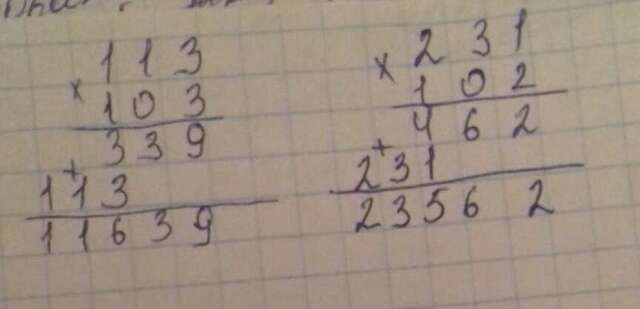 113
×
103
339
+
113
11639
231
×
102
462
+
231
23562